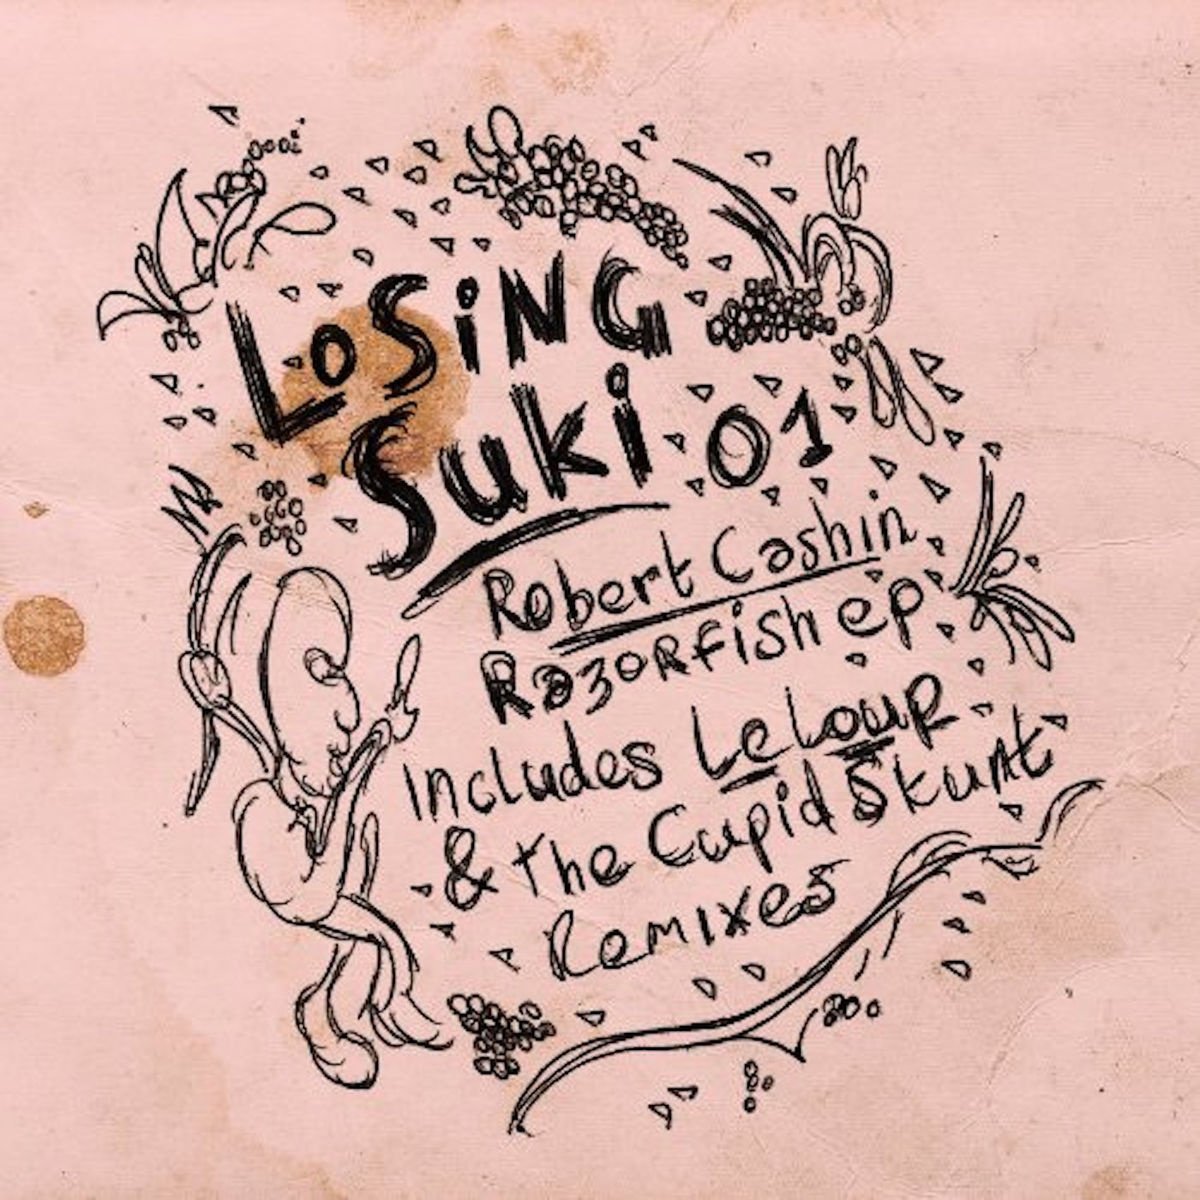 LoSiNG
Suki 01
Robert Cashin
Razorfish ep
Includes Le Loup
& the Cupid Skunt
Remixes